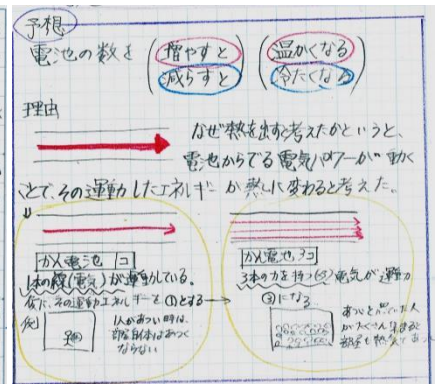 予想
電池の数を (増やすと 温かくなる)
(減らすと 冷たくなる)
理由
なぜ熱を出すと考えたかというと、
電池からでる電気パワーが動く
ことで、その運動したエネルギーが熱に変わると考えた。
かん電池 1コ
1本の線(電気)が運動している。
仮に、その運動エネルギーを①とする→
1人があつい時は、
部屋自体はあつく
ならない
かん電池 3コ
3本の力を持つ電気が運動
③になる
あついと思った人
がたくさん集まると
部屋も熱気で